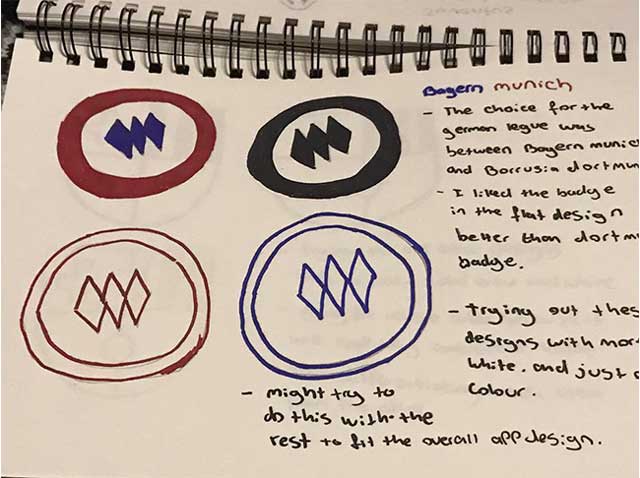 Bayern munich
- The choice for the
german legue was
between Bayern munic
and Borrusia dortmu
- I liked the badge
in the flat design
better than dortmu
badge.
- Trying out thes
designs with mor
white. and just
colour.
- might try to
do this with the
rest to fit the overall app design.